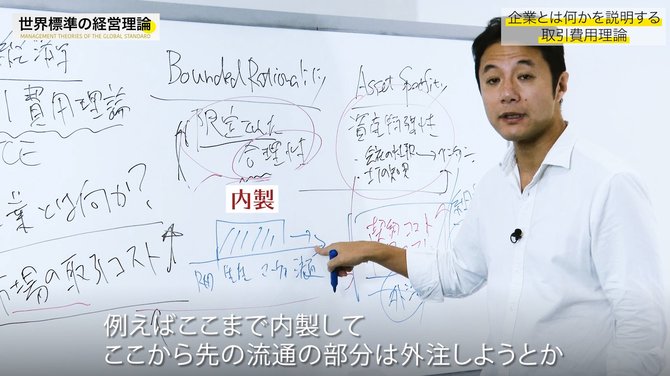 世界標準の経営理論
MANAGEMENT THEORIES OF THE GLOBAL STANDARD
企業とは何かを説明する
取引費用理論
経済学
引費用理論
CE
業とは何か?
市場の取引コスト
Bounded Rationality
限定された
合理性
Asset Specificity
資産特殊性
内製
R&D 生産 マーケ 流通
契約コスト
例えばここまで内製して
ここから先の流通の部分は外注しようとか